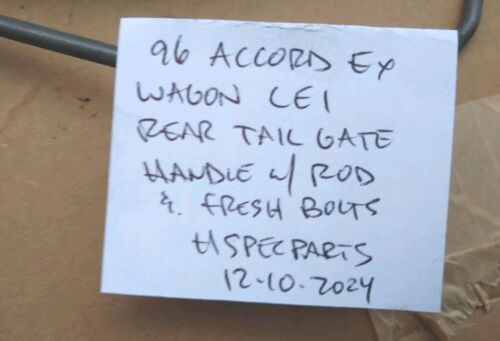 96 ACCORD EX
WAGON CE1
REAR TAIL GATE
HANDLE w/ ROD
& FRESH BOLTS
HSPECPARTS
12-10-2024